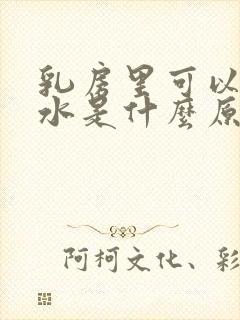 乳房里可以
水是什麼原
阿柯文化、彩